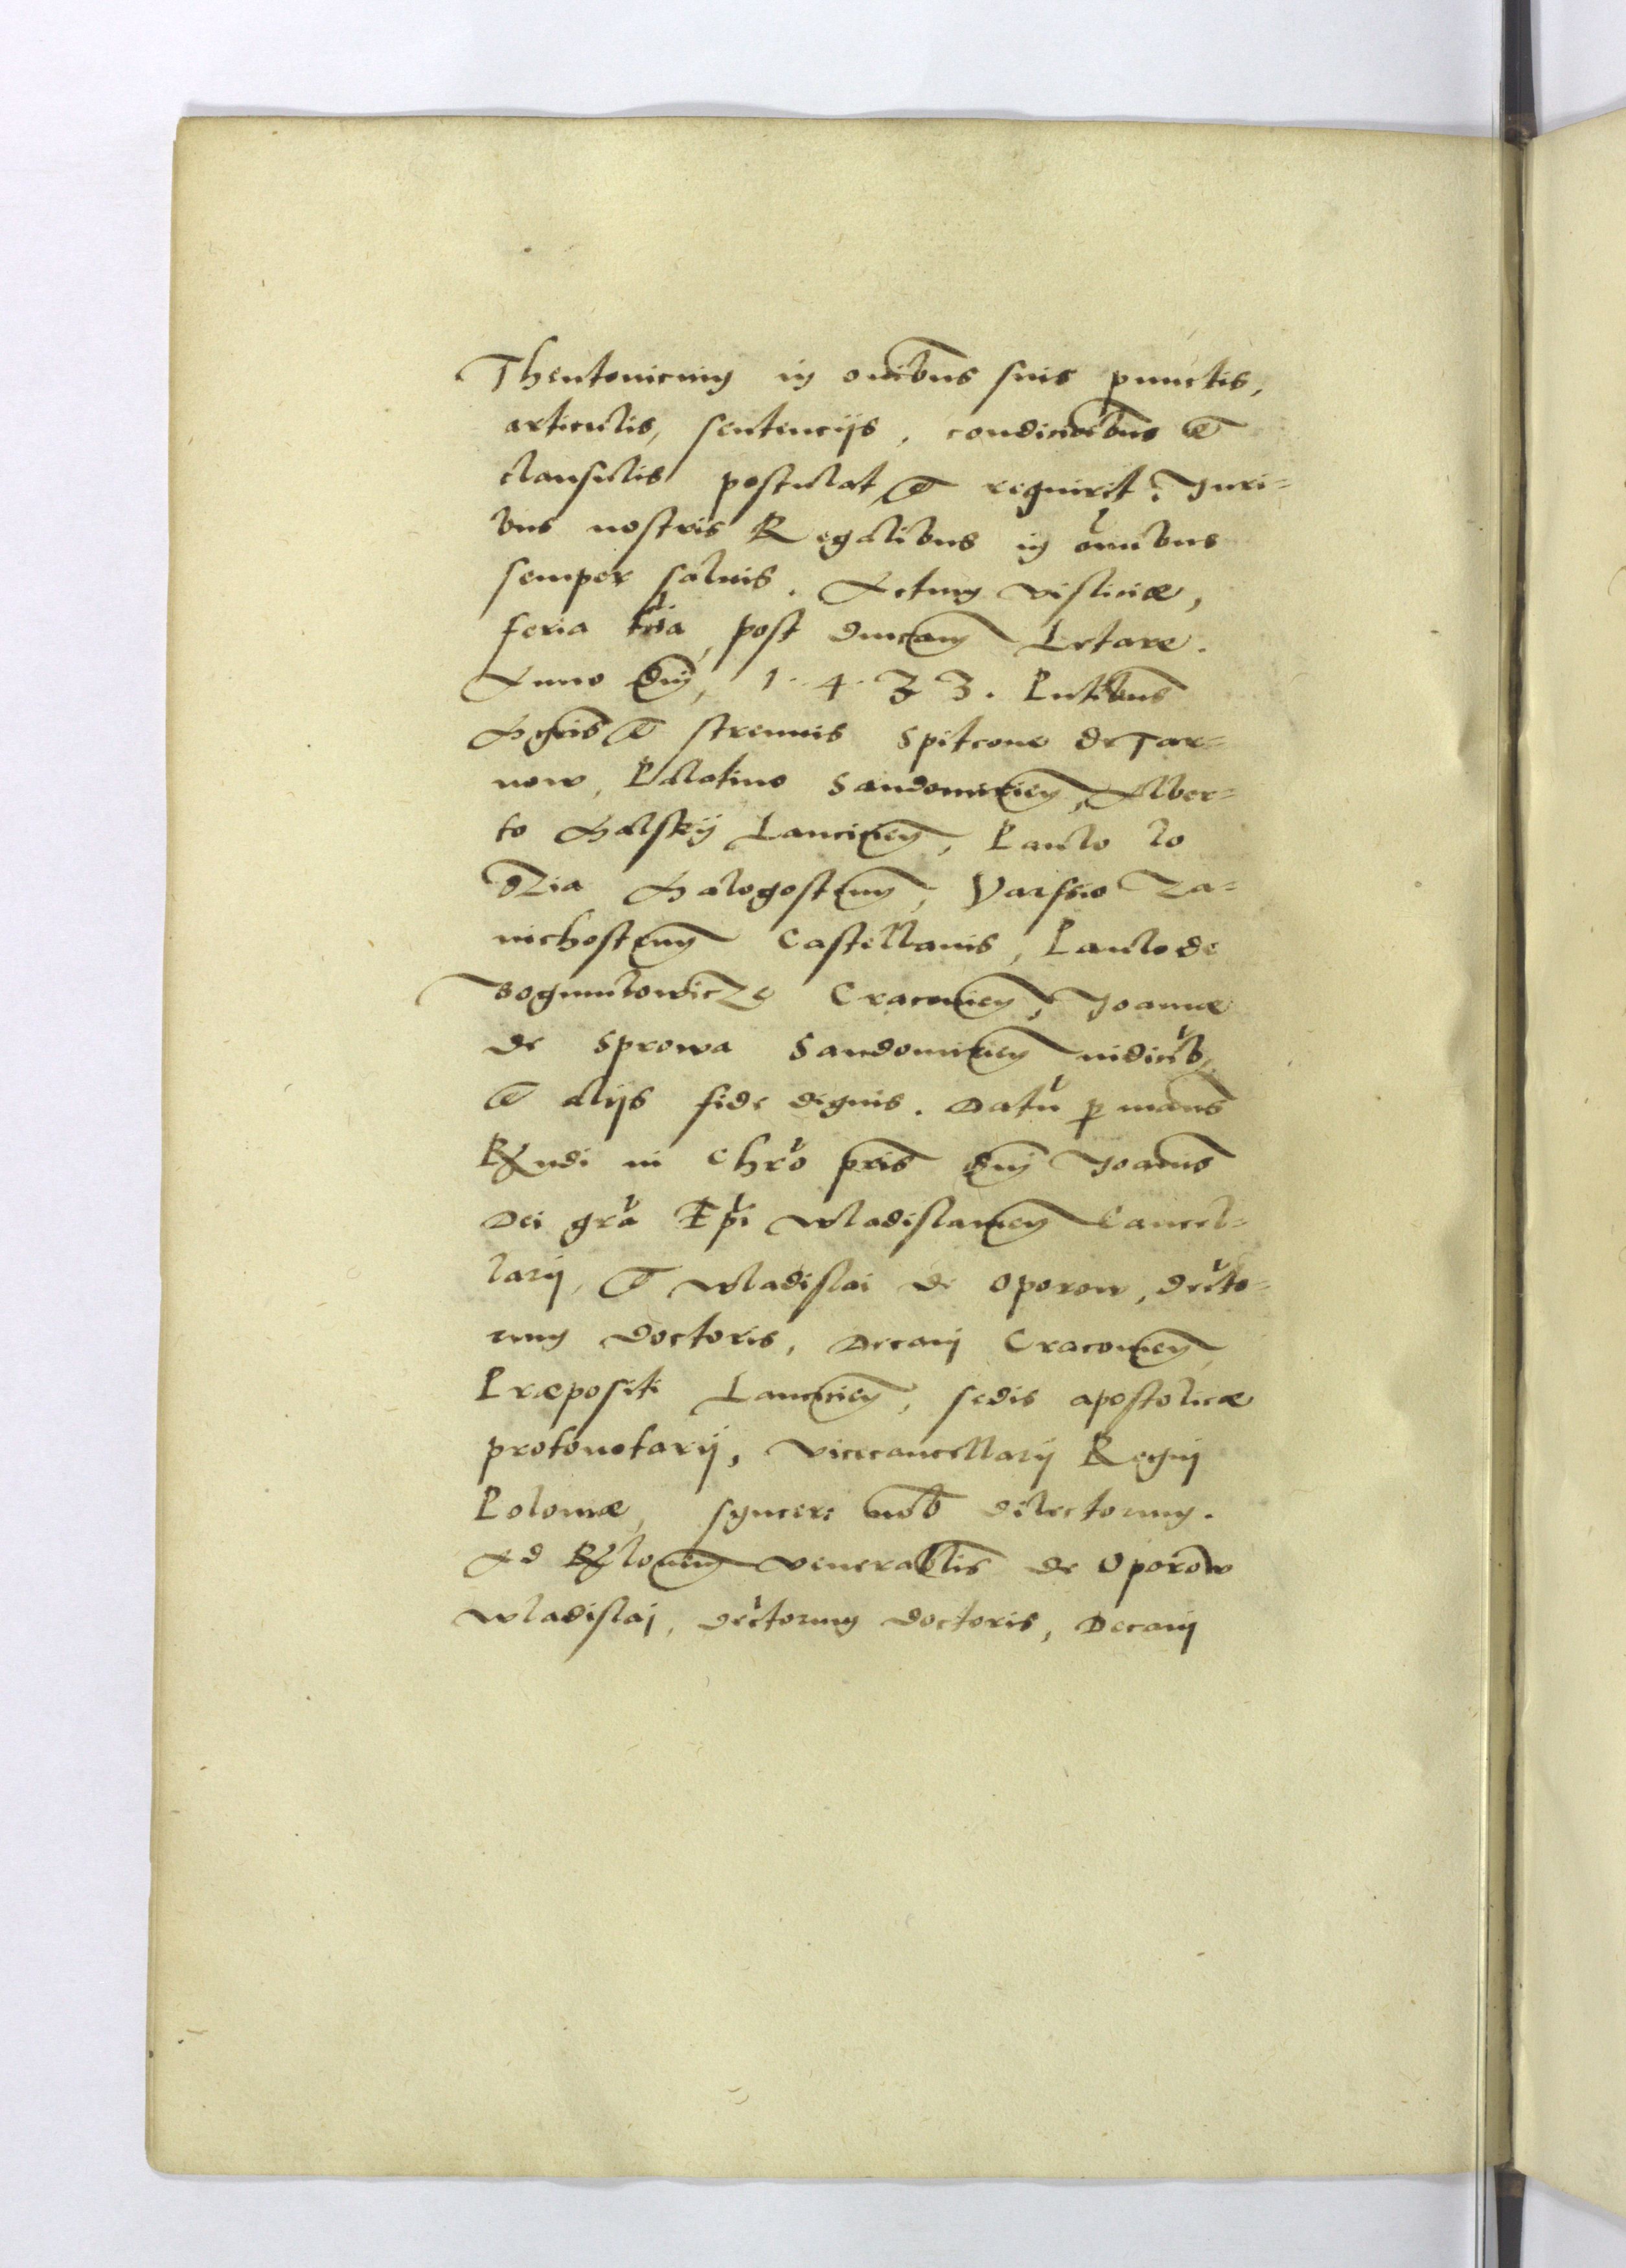 Theutonicum in oībus suis punctis,
articulis, sentencijs, condicioībus et
clausulis postulat, et requirit. Juri=
bus nostris Regalibus in oībus
semper saluis. Actum visliciæ,
feria tria post dnicam Letare.
Anno Dnj, 1.4.33. Pntibus
Mgcis et strenuis Spitcone de Tar=
now, Palatino Sandomirien, Alber=
to Malskj Lancicien, Paulo lo
dzia Malogosten, Varssio Za=
wichosten Castellanis, Paulo de
Bogumilowicze Cracouien, Joanne
de Sprowa Sandomirien iudicib,
et alijs fide dignis. Datū p manus
Rndi in Chro pris Dnj Joannis
Dei gra Epi wladislauien Cancel=
larij, et wladislai de Oporow, decto=
rum doctoris, Decanj Cracouien,
Præpositi Lancicien, sedis apostolicæ
protonotarij, vicecancellarij Regnj
Poloniæ, syncere nob dilectorum.
Ad Rlonem venerablis de Oporow
wladislaj, dectorum doctoris, Decanj